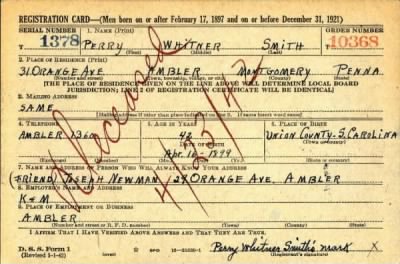 REGISTRATION CARD—(Men born on or after February 17, 1897 and on or before December 31, 1921)
SERIAL NUMBER 1. NAME (Print) ORDER NUMBER
1378 PERRY WHITNER SMITH 10368
(First) (Middle) (Last)
2. PLACE OF RESIDENCE (Print)
31 ORANGE AVE. AMBLER MONTGOMERY PENNA
(Number and street) (Town, township, village, or city) (County) (State)
[THE PLACE OF RESIDENCE GIVEN ON THE LINE ABOVE WILL DETERMINE LOCAL BOARD
JURISDICTION; LINE 2 OF REGISTRATION CERTIFICATE WILL BE IDENTICAL]
3. MAILING ADDRESS
SAME
[Mailing address if other than place indicated on line 2. If same insert word same]
4. TELEPHONE 5. AGE IN YEARS 6. PLACE OF BIRTH
AMBLER 42 UNION COUNTY
DATE OF BIRTH
Apr. 1899 S. CAROLINA
Deceased
7. NAME AND ADDRESS OF PERSON WHO WILL ALWAYS KNOW YOUR ADDRESS
(FRIEND) JOSEPH NEWMAN ORANGE AVE. AMBLER
8. EMPLOYER'S NAME AND ADDRESS
K & M
9. PLACE OF EMPLOYMENT OR BUSINESS
AMBLER
(Number and street or R. F. D. number) (Town) (County) (State)
I AFFIRM THAT I HAVE VERIFIED ABOVE ANSWERS AND THAT THEY ARE TRUE.
D. S. S. Form 1
(Revised 1-1-42) GPO Perry Whitner Smith's mark X